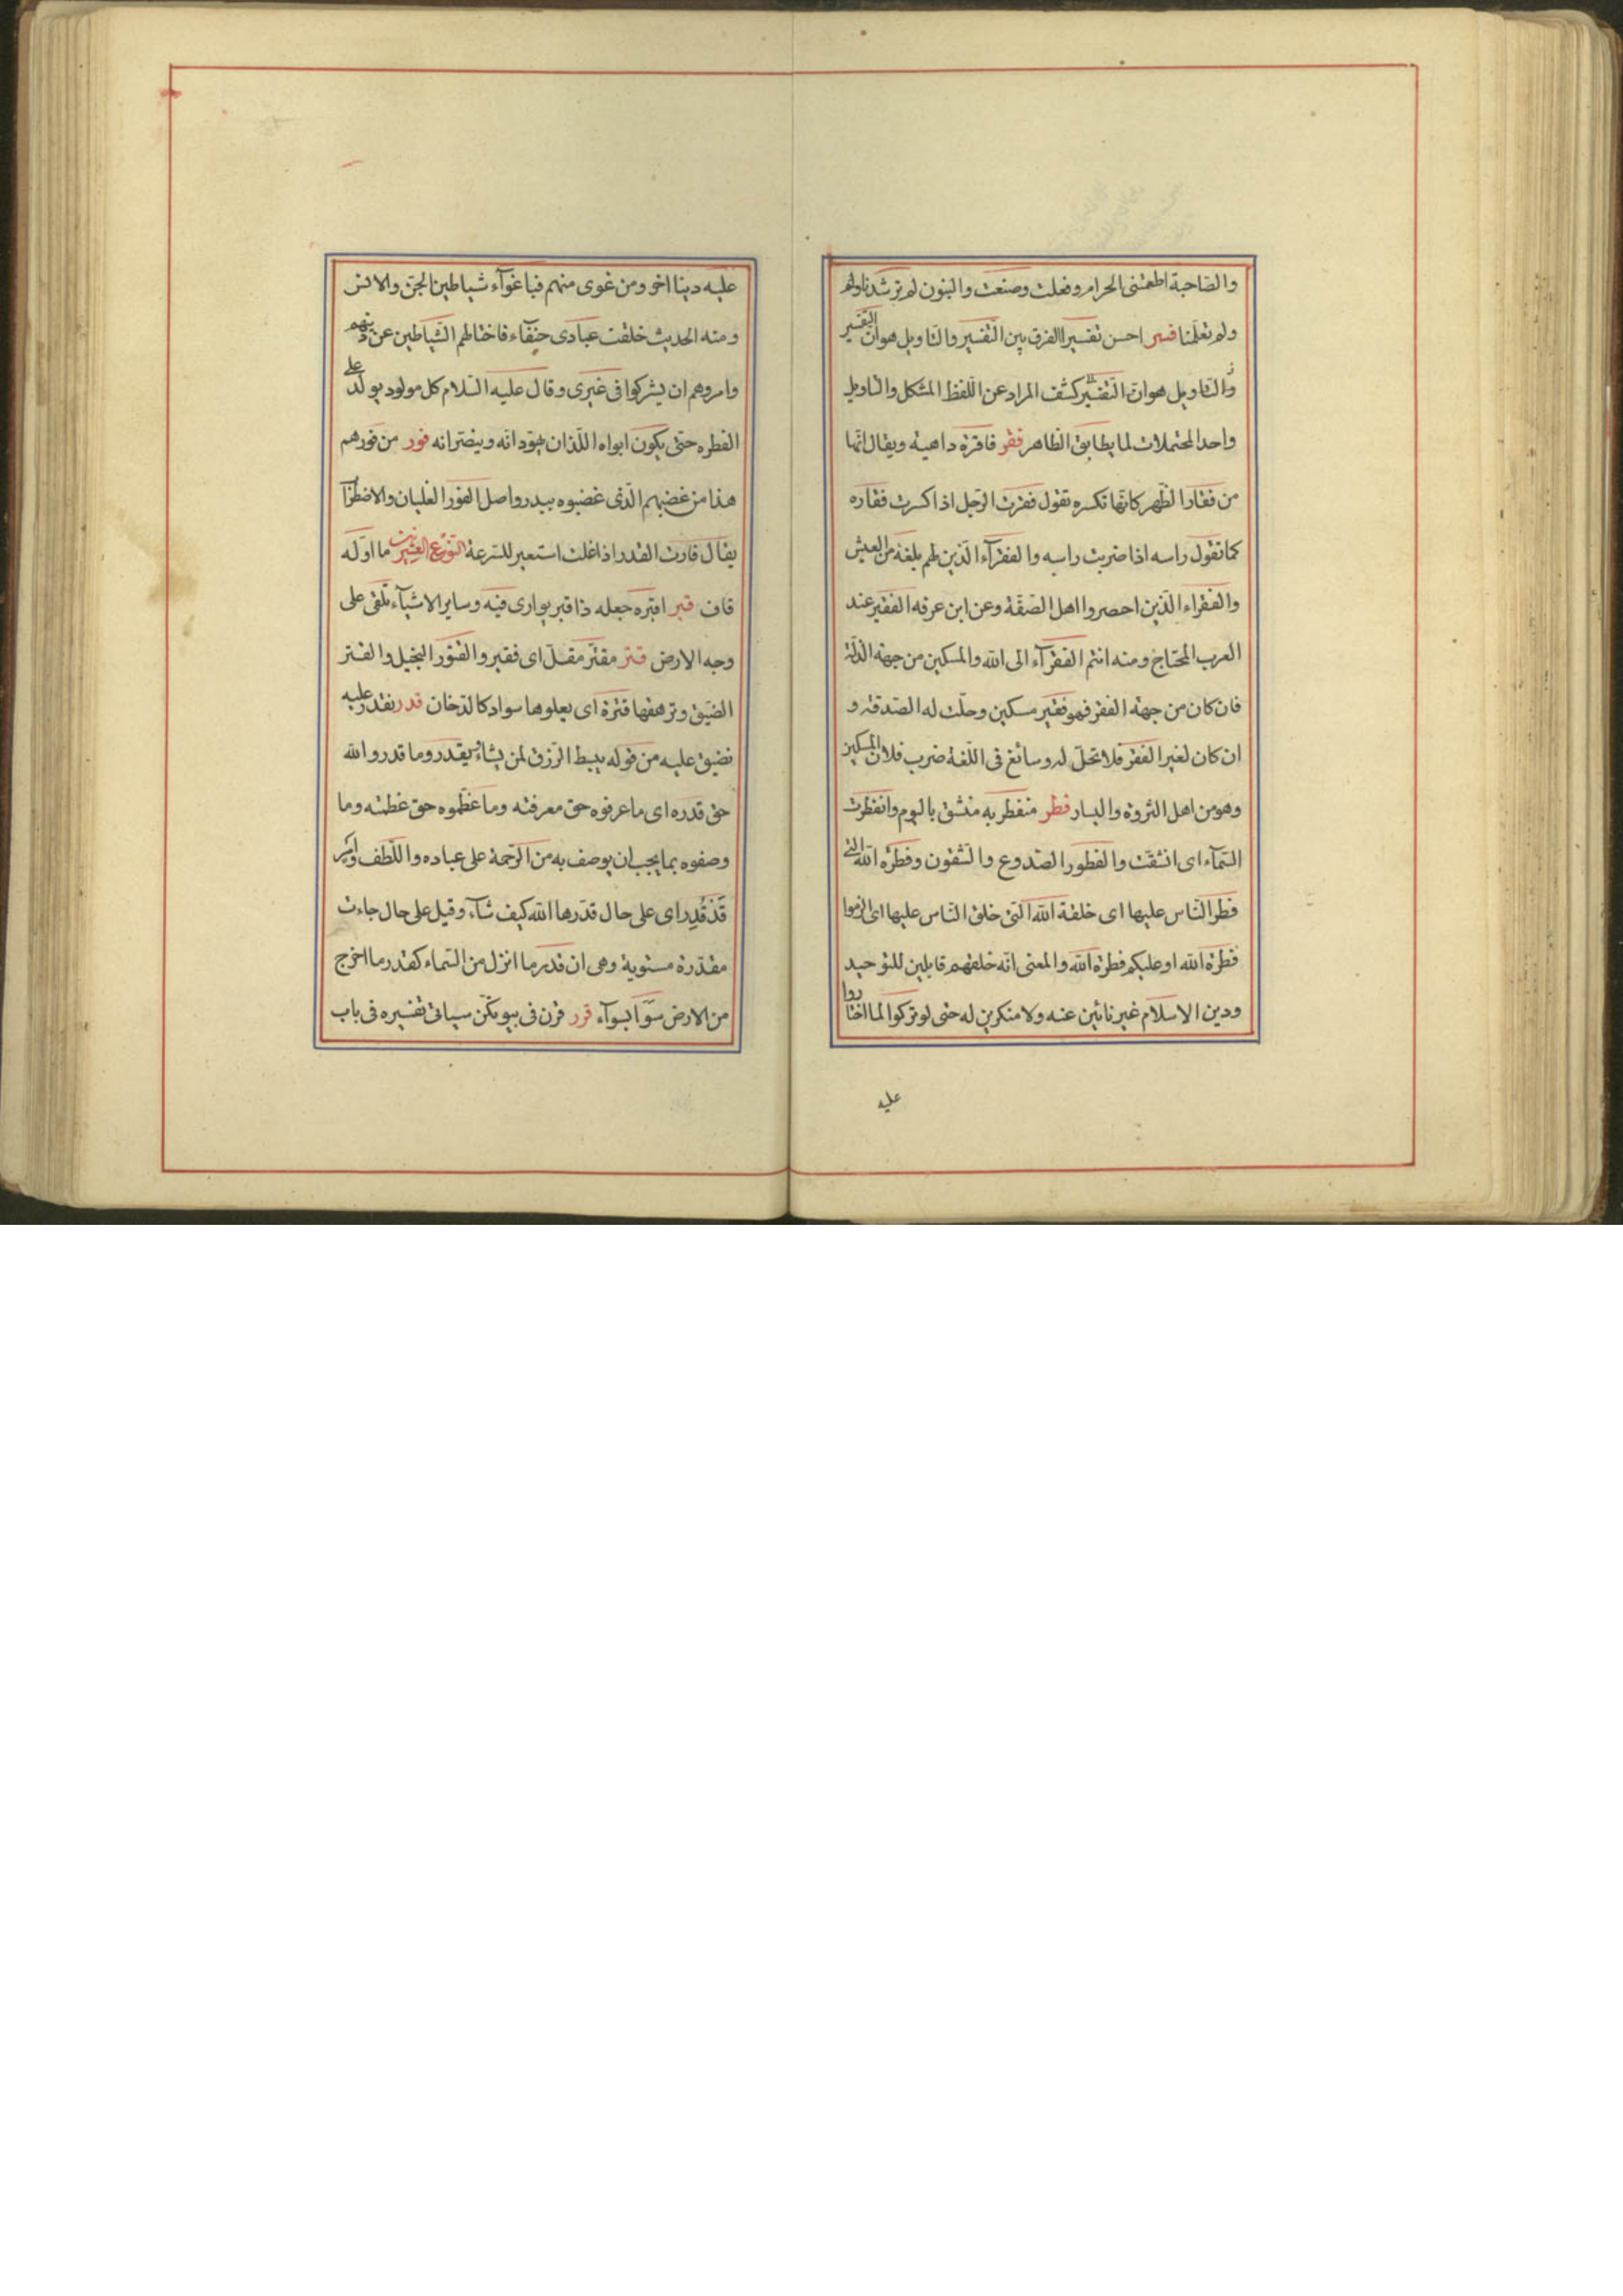 والصاحبة اطعمتنى الحرام وفعلت وصنعت والبنون لم ترشدنا ولم
ولم تعلمنا فسر احسن تفسيرا الفرق بين التفسير والتاويل هو ان التفسير
والتاويل هو ان التفسير كشف المراد عن اللفظ المشكل والتاويل
واحد المحتملات لما يطابق الظاهر فقر فاقرة داهية ويقال انها
من فقار الظهر كانها تكسره تقول فقرت الرجل اذا كسرت فقاره
كما تقول راسه اذا ضربت راسه والفقرآء الذين لهم بلغة من العيش
والفقراء الذين احصروا اهل الصفة وعن ابن عرفه الفقير عند
العرب المحتاج ومنه انتم الفقرآء الى الله والمسكين من جهة الذلة
فان كان من جهة الفقر فهو فقير مسكين وحلت له الصدقة و
ان كان لغير الفقر فلا تحل له وسائغ فى اللغة ضرب فلان المسكين
وهو من اهل الثروة واليسار فطر منفطر به منشق باليوم وانفطرت
السمآء اى انشقت والفطور الصدوع والشقوق وفطرة الله التى
فطر الناس عليها اى خلقة الله التى خلق الناس عليها اى الزموا
فطرة الله او عليكم فطرة الله والمعنى انه خلقهم قابلين للتوحيد
ودين الاسلام غير نائين عنه ولا منكرين له حتى لو تركوا لما اختاروا
عليه
عليه دينا اخر ومن غوى منهم فباغوآء شياطين الجن والانس
ومنه الحديث خلقت عبادى حنفاء فاختالهم الشياطين عن دينهم
وامروهم ان يشركوا فى غيرى وقال عليه السلام كل مولود يولد على
الفطره حتى يكون ابواه اللذان يهودانه وينصرانه فور من فورهم
هذا من غضبهم الذى غضبوه ببدر واصل الفور الغليان والاضطراب
يقال فارت القدر اذا غلت استعير للسرعة النوع العشرين ما اوله
قاف قبر اقبره جعله ذا قبر يوارى فيه وساير الاشيآء تلقى على
وجه الارض قتر مقتر مقل اى فقير والقتور البخيل والقتر
الضيق وترهقها قترة اى يعلوها سواد كالدخان قدر نقدر عليه
نضيق عليه من قوله يبسط الرزق لمن يشاء ويقدر وما قدروا الله
حق قدره اى ما عرفوه حق معرفته وما عظموه حق عظمته وما
وصفوه بما يجب ان يوصف به من الرحمة على عباده واللطف وامر
قد قدر اى على حال قدرها الله كيف شآء وقيل على حال جاءت
مقدرة مستوية وهى ان قدر ما انزل من السماء كقدر ما اخرج
من الارض سوآ بسوآء قرر قرن فى بيوتكن سياتى تفسيره فى باب